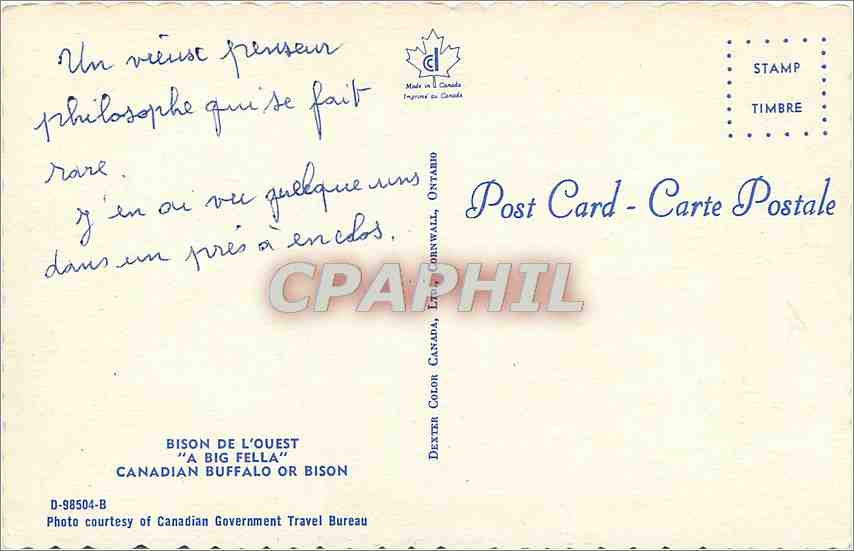 Un vieux penseur
philosophe qui se fait
rare.
J'en ai vu quelque uns
dans un prés à enclos.
CD
Made in Canada
Imprimé au Canada
STAMP
TIMBRE
Post Card - Carte Postale
DEXTER COLOR CANADA, LTD., CORNWALL, ONTARIO
CPAPHIL
BISON DE L'OUEST
"A BIG FELLA"
CANADIAN BUFFALO OR BISON
D-98504-B
Photo courtesy of Canadian Government Travel Bureau